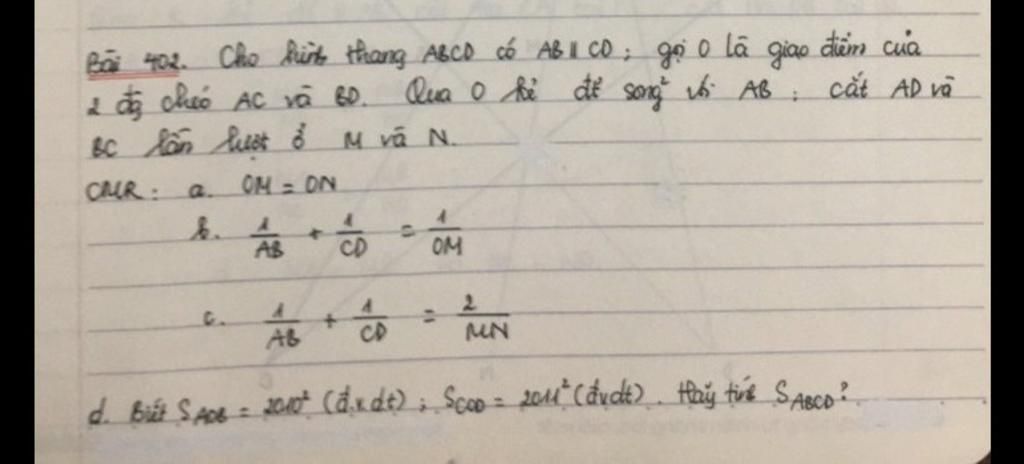 Bài 402. Cho hình thang ABCD có AB ∥ CD ; gọi O là giao điểm của
2 đg chéo AC và BD. Qua O kẻ đt song² vs AB ; cắt AD và
BC lần lượt ở M và N.
CMR : a. OM = ON
b. 1/AB + 1/CD = 1/OM
c. 1/AB + 1/CD = 2/MN
d. Biết S_AOB = 2010² (đ.v.dt) ; S_COD = 2011² (đvdt). Hãy tính S_ABCD ?